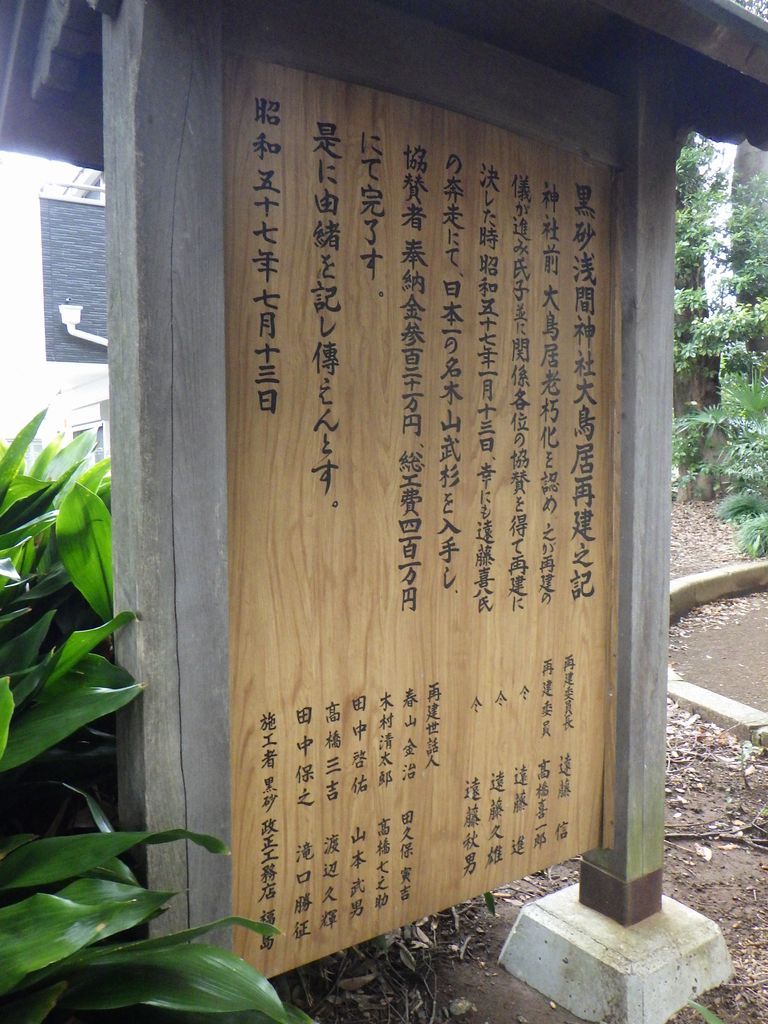 黒砂浅間神社大鳥居再建之記
神社前 大鳥居老朽化を認め 之が再建の
儀が進み氏子並に関係各位の協賛を得て再建に
決した時 昭和五十七年一月十三日、幸にも遠藤喜八氏
の奔走にて、日本一の名木山武杉を入手し、
協賛者 奉納金参百二十万円、総工費四百一万円
にて完了す。
是に由緒を記し傳えんとす。
昭和五十七年七月十三日
再建委員長 遠藤 信
再建委員 高橋喜一郎
〃 遠藤 進
〃 遠藤久雄
〃 遠藤秋男
再建世話人
春山金治 田久保寅吉
木村清太郎 高橋七之助
田中啓佑 山本武男
高橋三吉 渡辺久輝
田中保之 滝口勝征
施工者 黒砂 政正工務店 福島